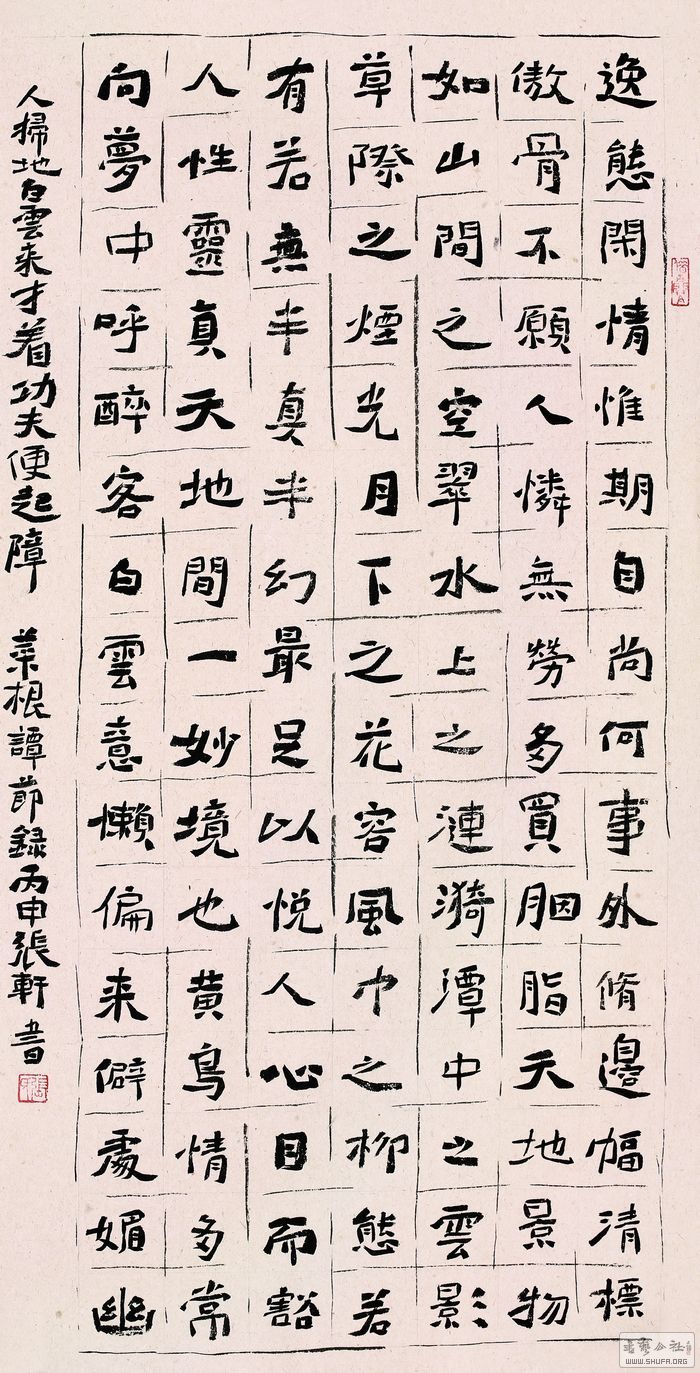 逸態閑情惟期自尚何事外脩邊幅清標
傲骨不願人憐無勞多買胭脂天地景物
如山間之空翠水上之漣漪潭中之雲影
草際之煙光月下之花容風中之柳態若
有若無半真半幻最足以悅人心目而豁
人性靈真天地間一妙境也黃鳥情多常
向夢中呼醉客白雲意懶偏来僻處媚幽
人掃地白雲来才着功夫便起障 菜根譚節録丙申張軒書
書藝公社
WWW.SHUFA.ORG